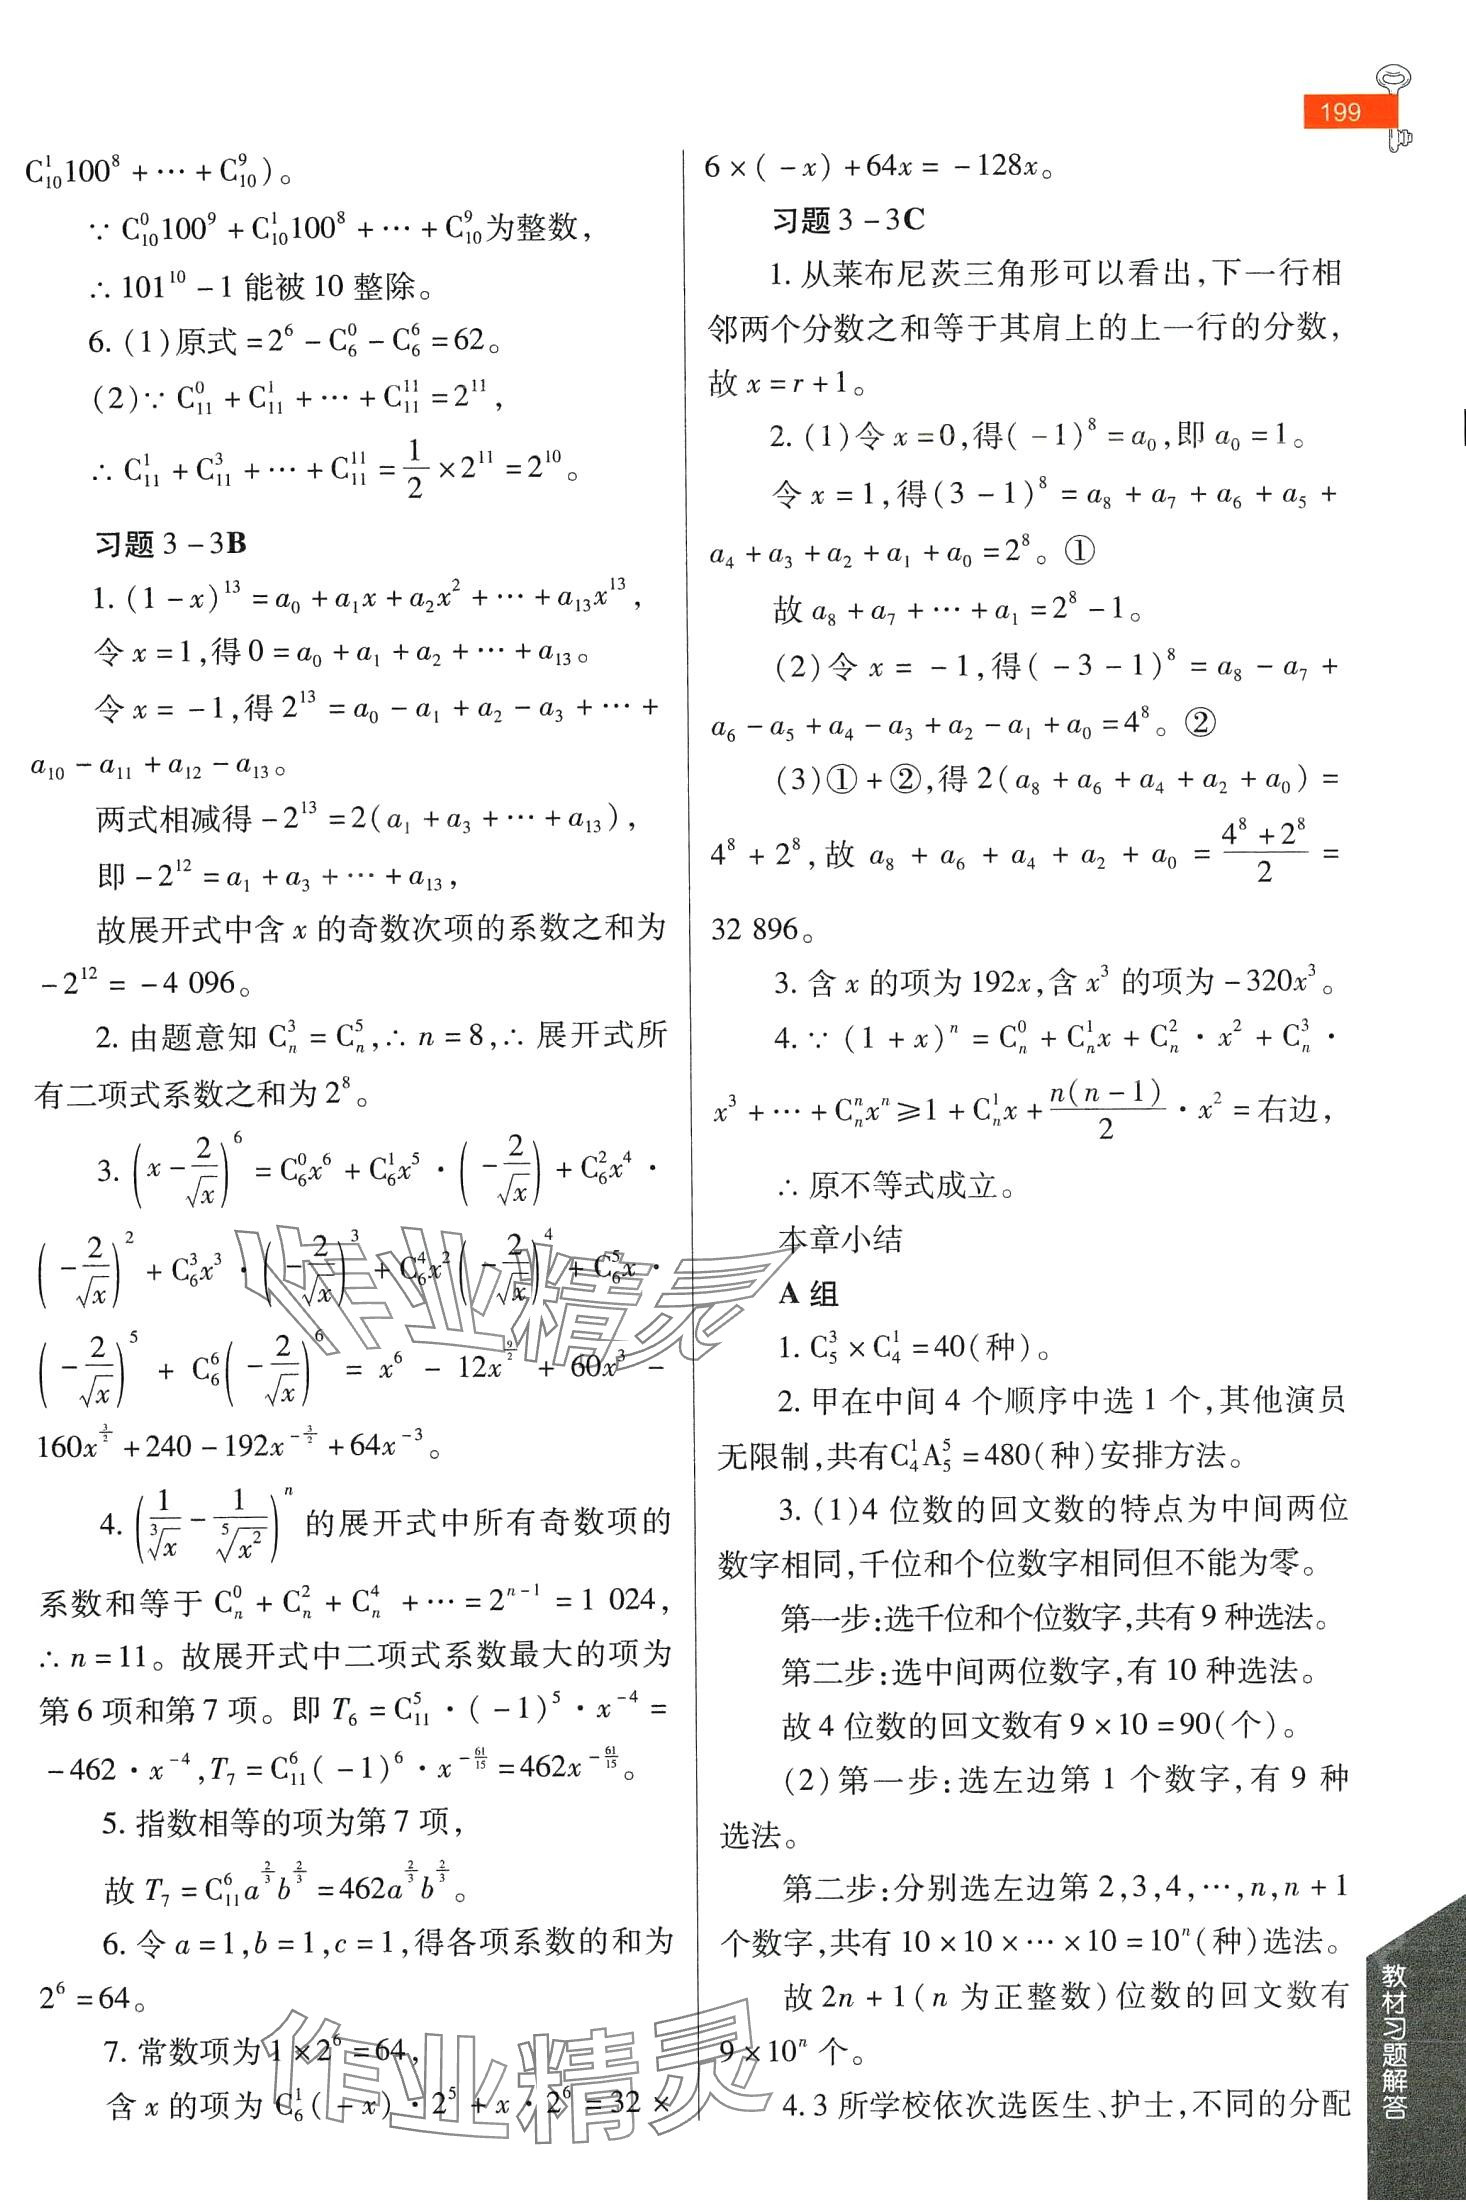 199
C₁₀¹100⁸ + ⋯ + C₁₀⁹)。
∵ C₁₀⁰100⁹ + C₁₀¹100⁸ + ⋯ + C₁₀⁹为整数,
∴ 101¹⁰ - 1 能被 10 整除。
6. (1)原式 = 2⁶ - C₆⁰ - C₆⁶ = 62。
(2)∵ C₁₁⁰ + C₁₁¹ + ⋯ + C₁₁¹¹ = 2¹¹,
∴ C₁₁¹ + C₁₁³ + ⋯ + C₁₁¹¹ = 1/2 × 2¹¹ = 2¹⁰。
习题 3 - 3B
1. (1 - x)¹³ = a₀ + a₁x + a₂x² + ⋯ + a₁₃x¹³,
令 x = 1,得 0 = a₀ + a₁ + a₂ + ⋯ + a₁₃。
令 x = -1,得 2¹³ = a₀ - a₁ + a₂ - a₃ + ⋯ +
a₁₀ - a₁₁ + a₁₂ - a₁₃。
两式相减得 -2¹³ = 2(a₁ + a₃ + ⋯ + a₁₃),
即 -2¹² = a₁ + a₃ + ⋯ + a₁₃,
故展开式中含 x 的奇数次项的系数之和为
-2¹² = -4 096。
2. 由题意知 Cₙ³ = Cₙ⁵,∴ n = 8,∴ 展开式所
有二项式系数之和为 2⁸。
3. (x - 2/√x)⁶ = C₆⁰x⁶ + C₆¹x⁵ · (-2/√x) + C₆²x⁴ ·
(-2/√x)² + C₆³x³ · (-2/√x)³ + C₆⁴x²(-2/√x)⁴ + C₆⁵x ·
(-2/√x)⁵ + C₆⁶(-2/√x)⁶ = x⁶ - 12x^(9/2) + 60x³ -
160x^(3/2) + 240 - 192x^(-3/2) + 64x⁻³。
4. (1/∛x - 1/⁵√x²)ⁿ 的展开式中所有奇数项的
系数和等于 Cₙ⁰ + Cₙ² + Cₙ⁴ + ⋯ = 2ⁿ⁻¹ = 1 024,
∴ n = 11。故展开式中二项式系数最大的项为
第 6 项和第 7 项。即 T₆ = C₁₁⁵ · (-1)⁵ · x⁻⁴ =
-462 · x⁻⁴,T₇ = C₁₁⁶(-1)⁶ · x^(-61/15) = 462x^(-61/15)。
5. 指数相等的项为第 7 项,
故 T₇ = C₁₁⁶a^(2/3)b^(2/3) = 462a^(2/3)b^(2/3)。
6. 令 a = 1,b = 1,c = 1,得各项系数的和为
2⁶ = 64。
7. 常数项为 1 × 2⁶ = 64,
含 x 的项为 C₆¹(-x) · 2⁵ + x · 2⁶ = 32 ×
6 × (-x) + 64x = -128x。
习题 3 - 3C
1. 从莱布尼茨三角形可以看出,下一行相
邻两个分数之和等于其肩上的上一行的分数,
故 x = r + 1。
2. (1)令 x = 0,得(-1)⁸ = a₀,即 a₀ = 1。
令 x = 1,得(3 - 1)⁸ = a₈ + a₇ + a₆ + a₅ +
a₄ + a₃ + a₂ + a₁ + a₀ = 2⁸。①
故 a₈ + a₇ + ⋯ + a₁ = 2⁸ - 1。
(2)令 x = -1,得(-3 - 1)⁸ = a₈ - a₇ +
a₆ - a₅ + a₄ - a₃ + a₂ - a₁ + a₀ = 4⁸。②
(3)① + ②,得 2(a₈ + a₆ + a₄ + a₂ + a₀) =
4⁸ + 2⁸,故 a₈ + a₆ + a₄ + a₂ + a₀ = (4⁸ + 2⁸)/2 =
32 896。
3. 含 x 的项为 192x,含 x³ 的项为 -320x³。
4. ∵ (1 + x)ⁿ = Cₙ⁰ + Cₙ¹x + Cₙ² · x² + Cₙ³ ·
x³ + ⋯ + Cₙⁿxⁿ ≥ 1 + Cₙ¹x + n(n - 1)/2 · x² = 右边,
∴ 原不等式成立。
本章小结
A 组
1. C₅³ × C₄¹ = 40(种)。
2. 甲在中间 4 个顺序中选 1 个,其他演员
无限制,共有C₄¹A₅⁵ = 480(种)安排方法。
3. (1)4 位数的回文数的特点为中间两位
数字相同,千位和个位数字相同但不能为零。
第一步:选千位和个位数字,共有 9 种选法。
第二步:选中间两位数字,有 10 种选法。
故 4 位数的回文数有 9 × 10 = 90(个)。
(2)第一步:选左边第 1 个数字,有 9 种
选法。
第二步:分别选左边第 2,3,4,⋯,n,n + 1
个数字,共有 10 × 10 × ⋯ × 10 = 10ⁿ(种)选法。
故 2n + 1(n 为正整数)位数的回文数有
9 × 10ⁿ 个。
4. 3 所学校依次选医生、护士,不同的分配
教材习题解答
作业精灵
作业精灵